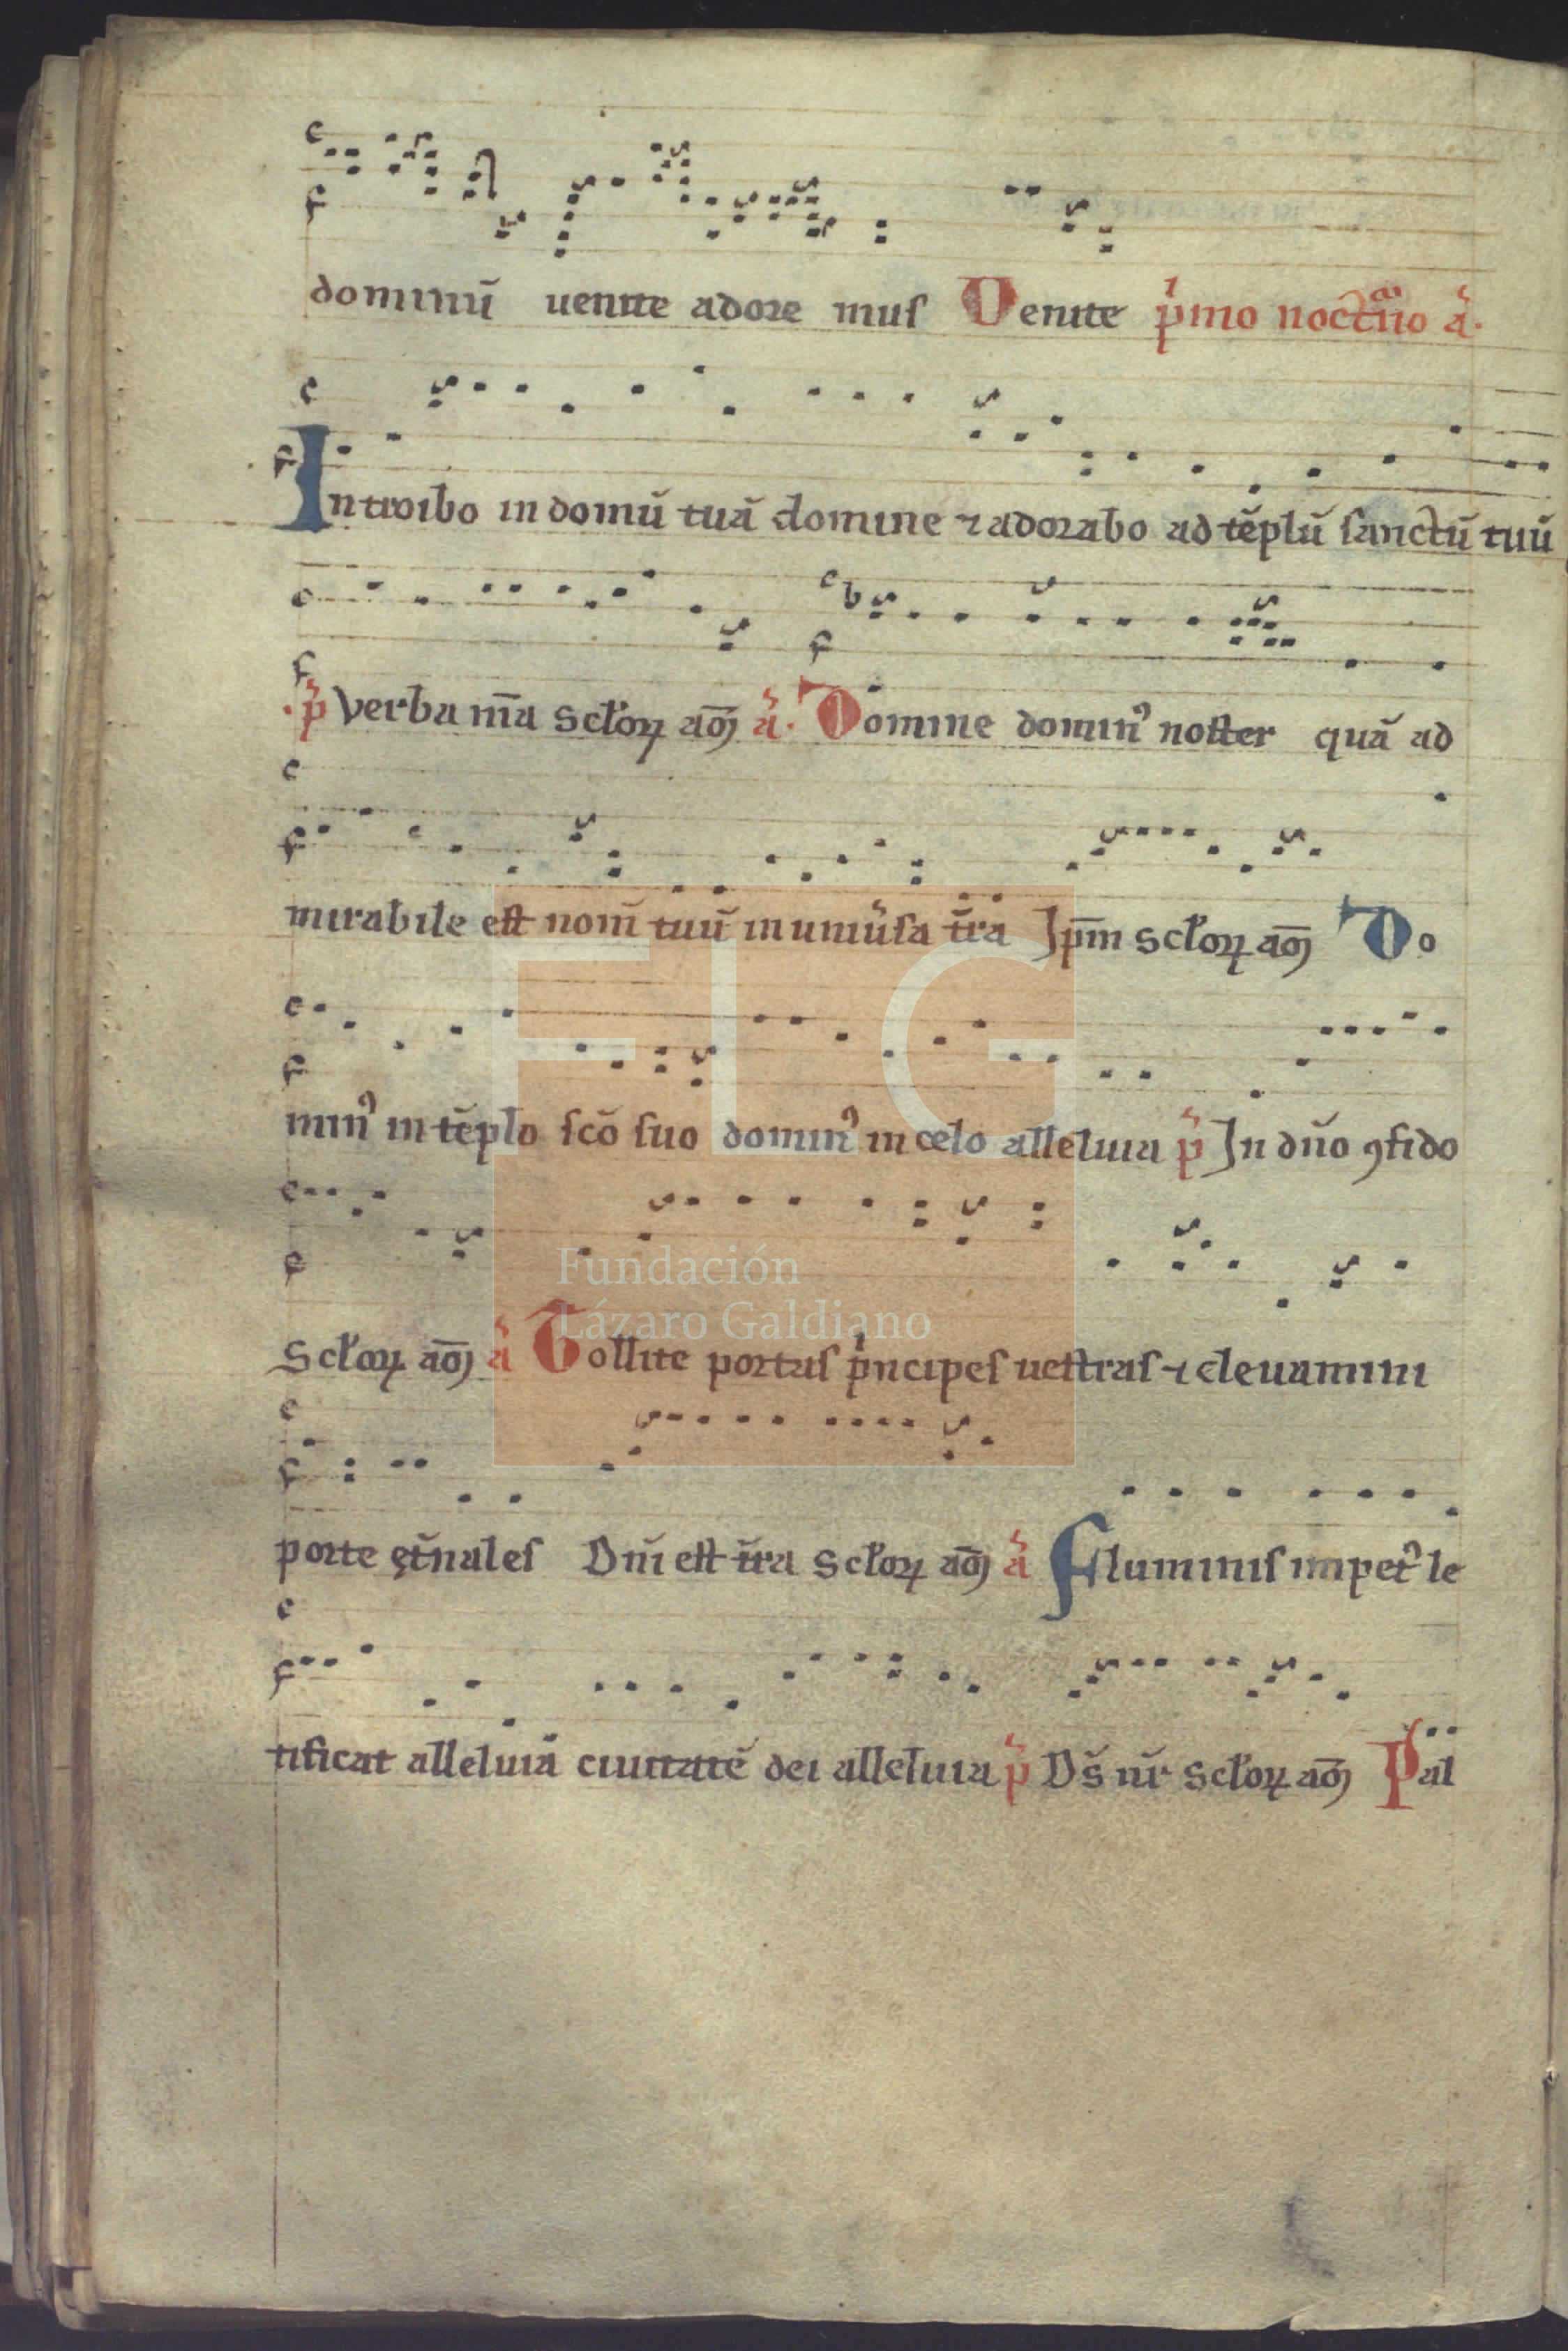 dominū uenite adore mus Venite p'mo noct'no a᷎.
Introibo in domū tuā domine ⁊ adorabo ad tēplū sanctū tuū
p᷎ Verba m̄a sc̄lor̄ꝝ am̄ a᷎. Domine domin' noster quā ad
mirabile est nom̄ tuū in uniu᷎sa t̄ra Ip̄m sclorꝝ am̄ Do
min' in tēplo scō suo domin' in celo alleluia p᷎ In dn̄o ꝯfido
Sclorꝝ am̄ a᷎ Tollite portas p'ncipes uestras ⁊ eleuamini
porte ęt̄nales Dn̄i est t̄ra Sclorꝝ am̄ a᷎ Fluminis impet' le
tificat alleluia ciuitatē dei alleluia p᷎ Ds̄ nr̄ Sclorꝝ am̄ Psal
FLG
Fundación
Lázaro Galdiano